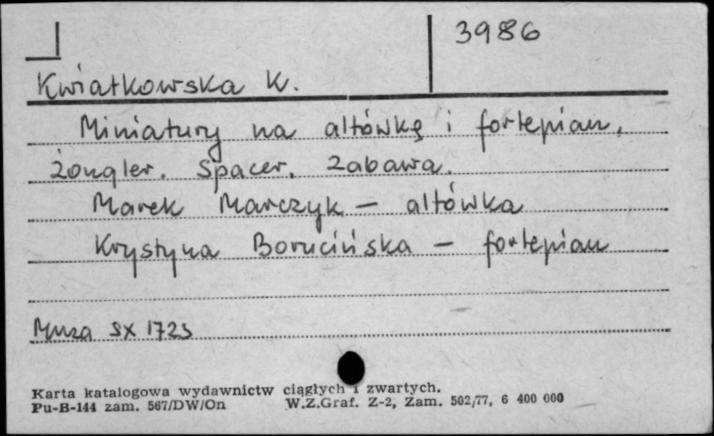 3986
Kwiatkowska K.
Miniatury na altówkę i fortepian.
Żongler. Spacer. Zabawa.
Marek Marczyk – altówka
Krystyna Borucińska – fortepian
Muza SX 1725
Karta katalogowa wydawnictw ciągłych i zwartych.
Pu-B-144 zam. 567/DW/On W.Z.Graf. Z-2, Zam. 502/77, 6 400 000